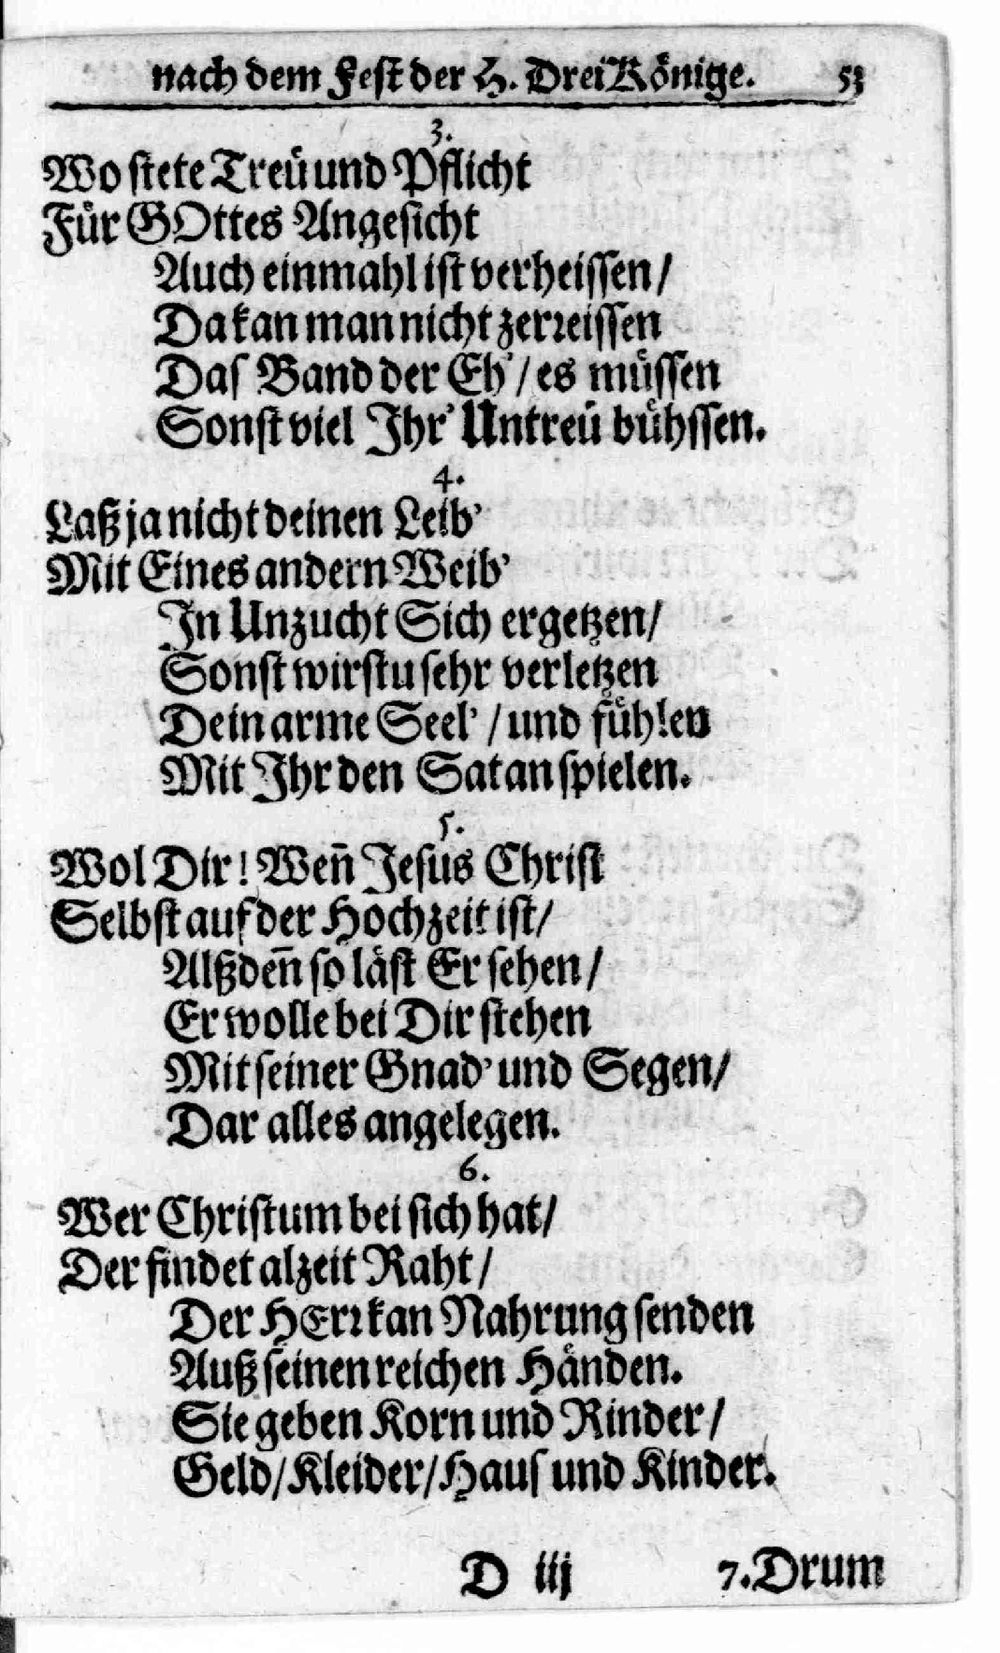 nach dem Fest der H. Drei Könige. 53
3.
Wo stete Treü und Pflicht
Für GOttes Angesicht
Auch einmahl ist verheissen/
Da kan man nicht zerreissen
Das Band der Eh'/ es müssen
Sonst viel Ihr' Untreü bühssen.
4.
Laß ja nicht deinen Leib'
Mit Eines andern Weib'
In Unzucht Sich ergetzen/
Sonst wirstu sehr verletzen
Dein arme Seel'/ und fühlen
Mit Ihr den Satan spielen.
5.
Wol Dir! Wen̄ Jesus Christ
Selbst auf der Hochzeit ist/
Alßden̄ so läst Er sehen/
Er wolle bei Dir stehen
Mit seiner Gnad' und Segen/
Dar alles angelegen.
6.
Wer Christum bei sich hat/
Der findet alzeit Raht/
Der HErr kan Nahrung senden
Auß seinen reichen Händen.
Sie geben Korn und Rinder/
Geld/ Kleider/ Haus und Kinder.
D iij 7. Drum